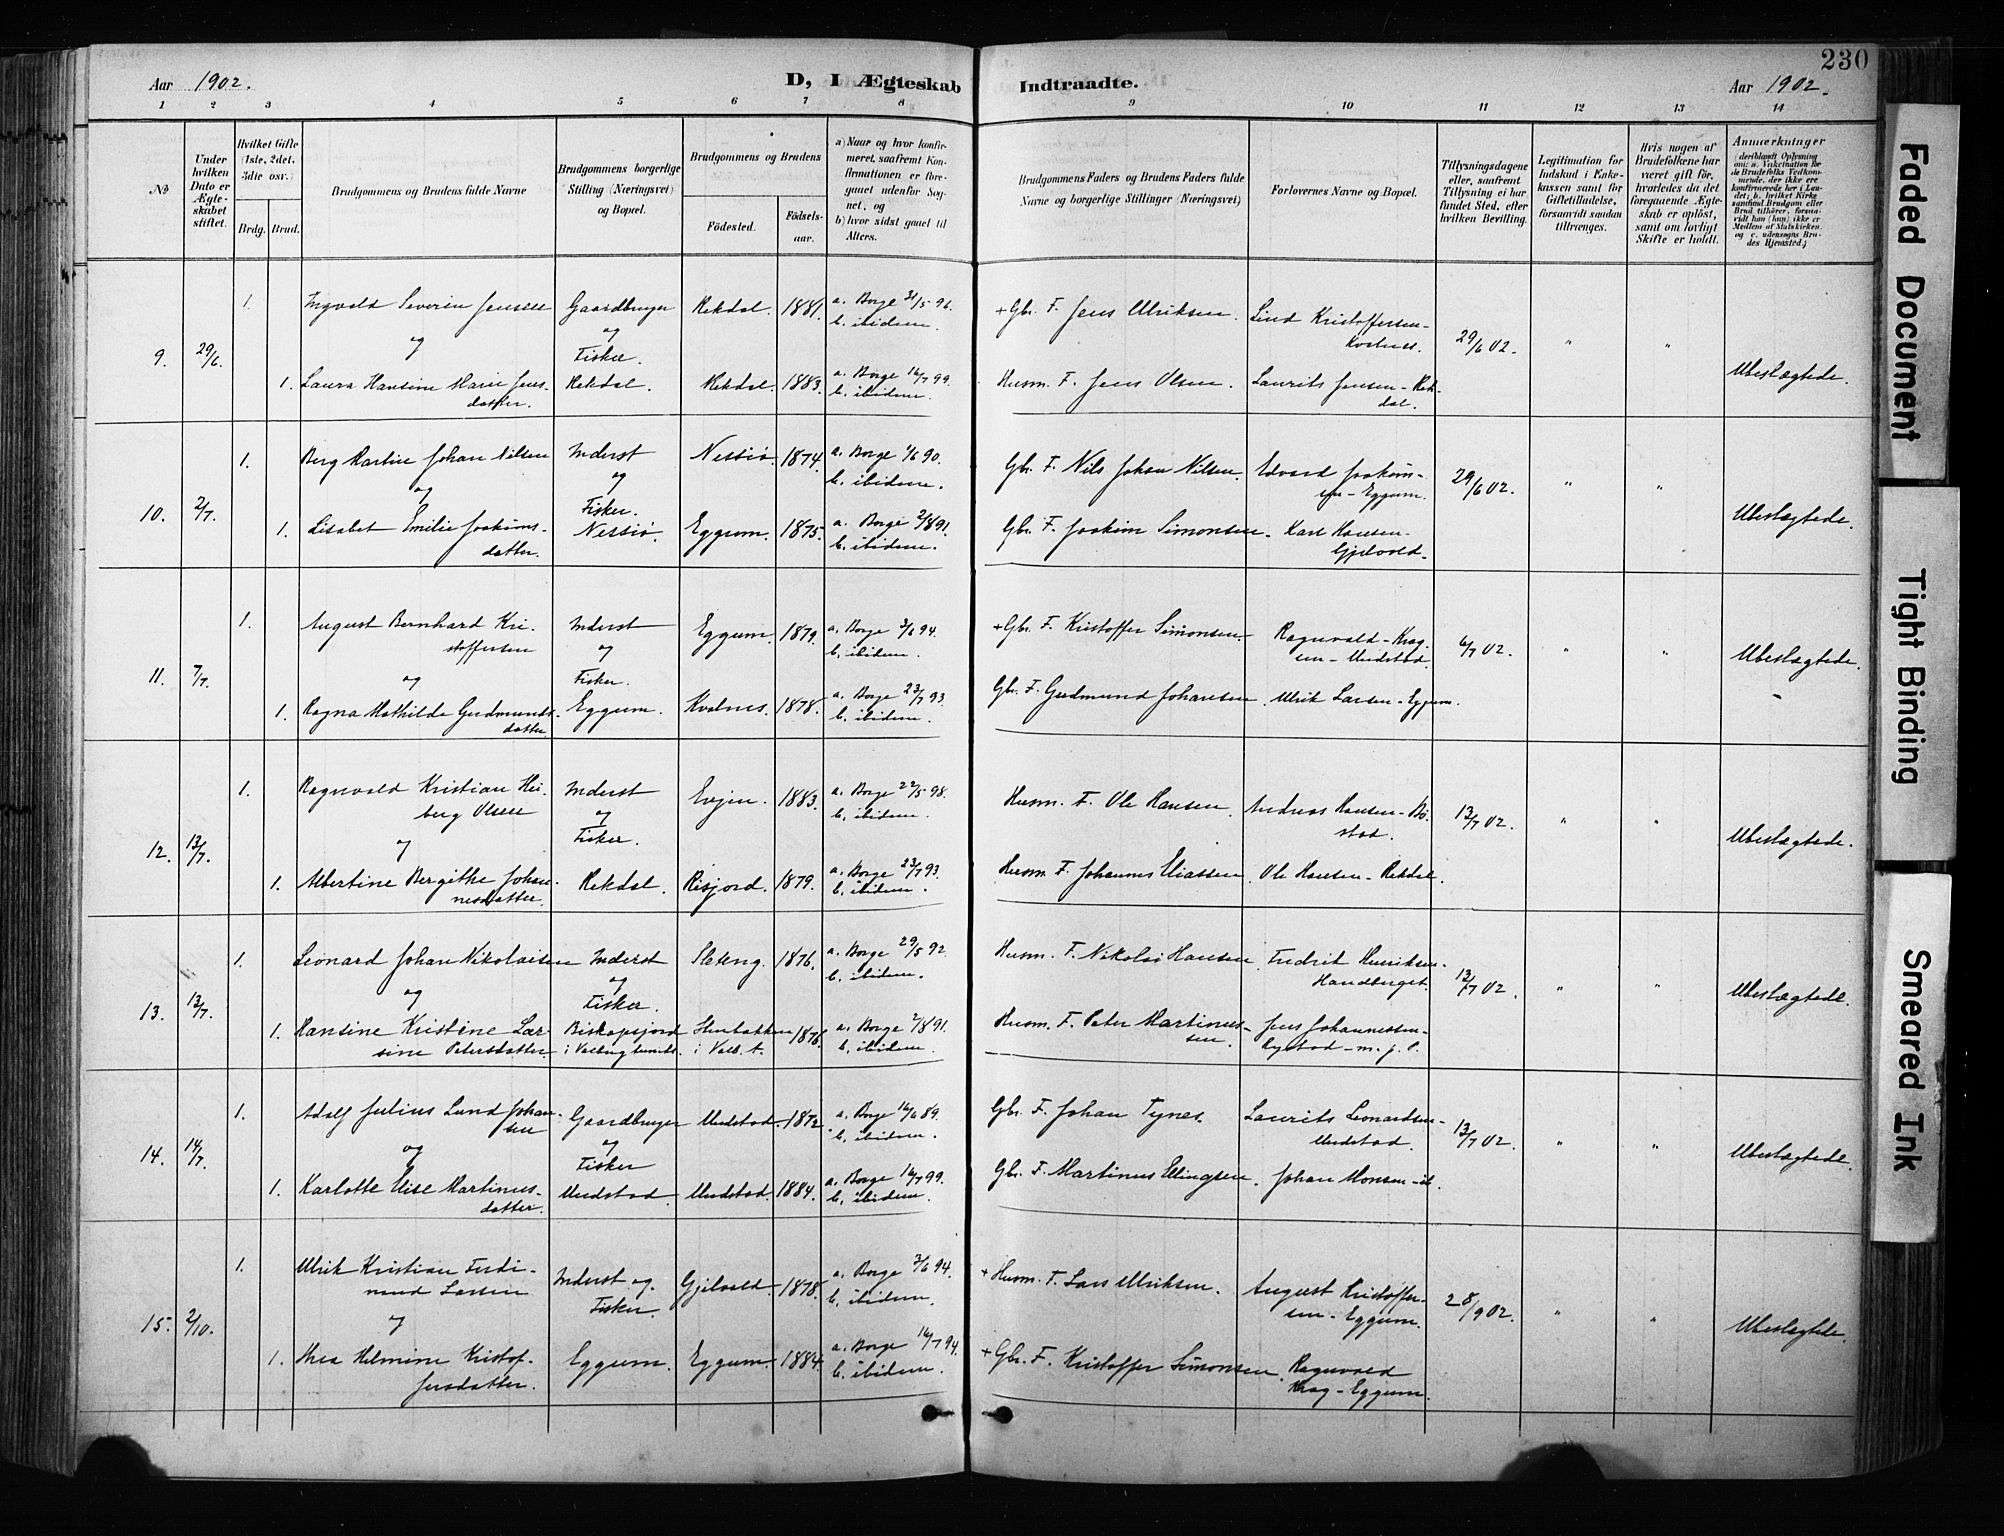 230
Aar 1902.
D, I Ægteskab Indtraadte.
Aar 1902.
1 2 3 4 5 6 7 8 9 10 11 12 13 14
No
Under hvilken Dato er Ægteskabet stiftet.
Hvilket Gifte (1ste, 2det, 3die osv.)
Brdg. Brud.
Brudgommens og Brudens fulde Navne
Brudgommens borgerlige Stilling (Næringsvei) og Bopæl.
Brudgommens og Brudens
Fødested. Fødselsaar.
a) Naar og hvor konfirmeret, saafremt Konfirmationen er foregaaet udenfor Sognet, og
b) hvor sidst gaaet til Alters.
Brudgommens Faders og Brudens Faders fulde Navne og borgerlige Stillinger (Næringsvei)
Forlovernes Navne og Bopæl.
Tillysningsdagene eller, saafremt Tillysning ei har fundet Sted, efter hvilken Bevilling.
Legitimation for Indskud i Enkekassen samt for Giftetilladelse, forsaavidt saadan tiltrænges.
Hvis nogen af Brudefolkene har været gift før, hvorledes da det foregaaende Ægteskab er opløst, samt om lovligt Skifte er holdt.
Anmærkninger
(deriblandt Oplysning om: a. Vakcination for de Brudefolks Vedkommende, der ikke ere konfirmerede her i Landet; b. hvilket Kirkesamfund Brudgom eller Brud tilhører, forsaavidt han (hun) ikke er Medlem af Statskirken, og c. udensogns Brudes Hjemsted.)
9. 29/6.
1. Ingvald Severin Jensen Gaardbruger Rekdal. 1881. a. Borge 31/5 96. + Gbr. F. Jens Ulriksen. Lind Kristoffersen- 29/6 02. " "
og og b. ibidem. Kvalnes.
Fisker. Ubeslægtede.
1. Laura Hansine Marie Jens- Rekdal. Rekdal. 1883. a. Borge 16/7 99. Husm. F. Jens Olsen. Laurits Jensen - Rek-
datter. b. ibidem. dal.
10. 2/7.
1. Berg Martin Johan Nilsen Inderst Nessiø. 1874. a. Borge 1/6 90. Gbr. F. Nils Johan Nilsen. Edvard Joakim- 29/6 02. " "
og og b. ibidem. sen - Eggum.
Fisker. Ubeslægtede.
1. Lisabet Emilie Joakims- Nessiø. Eggum. 1875. a. Borge 2/8 91. Gbr. F. Joakim Simonsen. Karl Hansen-
datter. b. ibidem. Gjelvold.
11. 7/7.
1. August Bernhard Kri- Inderst Eggum. 1879. a. Borge 3/6 94. + Gbr. F. Kristoffer Simonsen. Ragnvald - Krog- 6/7 02. " "
stoffersen og b. ibidem. sen - Undstad.
og Fisker. Ubeslægtede.
1. Ragna Mathilde Gudmunds- Eggum. Kvalnes. 1878. a. Borge 23/7 93. Gbr. F. Gudmund Johansen. Ulrik Larsen - Eggum.
datter b. ibidem.
12. 13/7.
1. Ragnvald Kristian Hei- Inderst Evjen. 1883. a. Borge 22/5 98. Husm. F. Ole Hansen. Andreas Hansen - Bø- 13/7 02. " "
berg Olsen og b. ibidem. stad.
og Fisker. Ubeslægtede.
1. Albertine Bergithe Johan- Rekdal. Risjord. 1879. a. Borge 23/7 93. Husm. F. Johannes Eliassen. Ole Hansen - Rekdal.
nesdatter. b. ibidem.
13. 13/7.
1. Leonard Johan Nikolaisen Inderst Sleteng. 1876. a. Borge 29/5 92. Husm. F. Nikolai Hansen. Fredrik Henriksen- 13/7 02. " "
og og b. ibidem. Handberget.
Fisker. Ubeslægtede.
1. Hansine Kristine Lar- Biskopsjord Hembakken 1876. a. Borge 2/8 91. Husm. F. Peter Martinus- Jens Johannessen-
sine Petersdatter i Valberg i Valb. A. b. ibidem. sen. Rystad - m. p. P.
14. 14/7.
1. Adolf Julius Lund Johan- Gaardbruger Undstad. 1872. a. Borge 16/6 89. Gbr. F. Johan Tynes. Laurits Leonardsen- 13/7 02. " "
sen og b. ibidem. Undstad.
og Fisker Ubeslægtede.
1. Karlotte Elise Martinus- Undstad Undstad. 1884. a. Borge 16/7 99. Gbr. F. Martinus Ellingsen. Johan Monsen - ib.
datter. b. ibidem.
15. 2/10.
1. Ulrik Kristian Ferdi- Inderst og Gjelvold. 1878. a. Borge 3/6 94. + Husm. F. Lars Ulriksen. August Kristoffer- 28/9 02. " "
nand Larsen Fisker. b. ibidem. sen - Eggum.
og Ubeslægtede.
1. Thea Helmine Kristof- Eggum. Eggum. 1884. a. Borge 16/7 94. + Gbr. F. Kristoffer Simonsen. Ragnvald
fersdatter. b. ibidem. Krog - Eggum.
Faded Document
Tight Binding
Smeared Ink